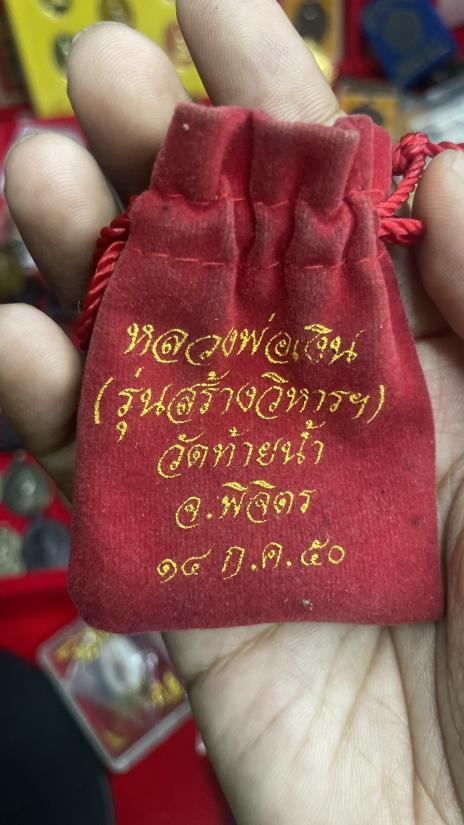 หลวงพ่อเงิน
(รุ่นสร้างวิหารฯ)
วัดท้ายน้ำ
จ.พิจิตร
๑๔ ก.ค.๕๐